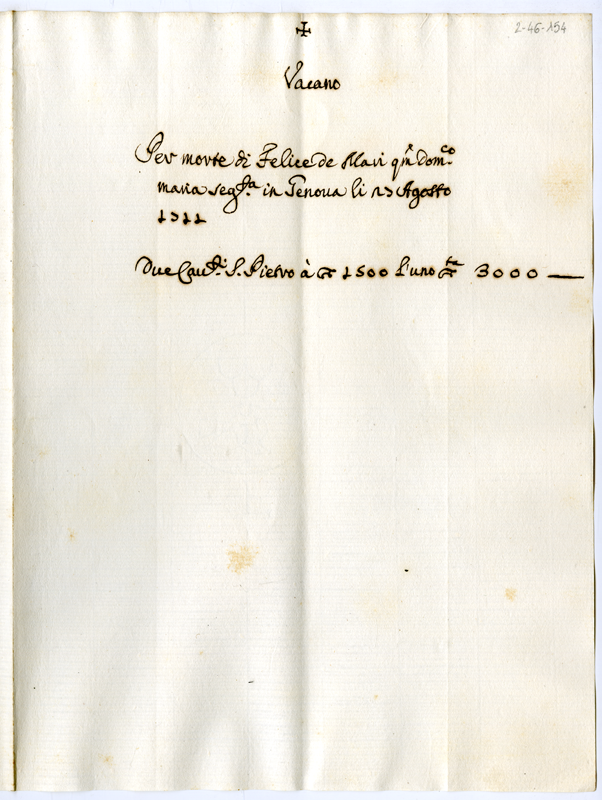 2-46-154
✠
Vacano
Per morte di Felice de Mari qm̃ Dom.co
maria seg.ta in Genova li 23 Agosto
1711
Due Cav.ti S. Pietro à 1500 l'uno 3000 —